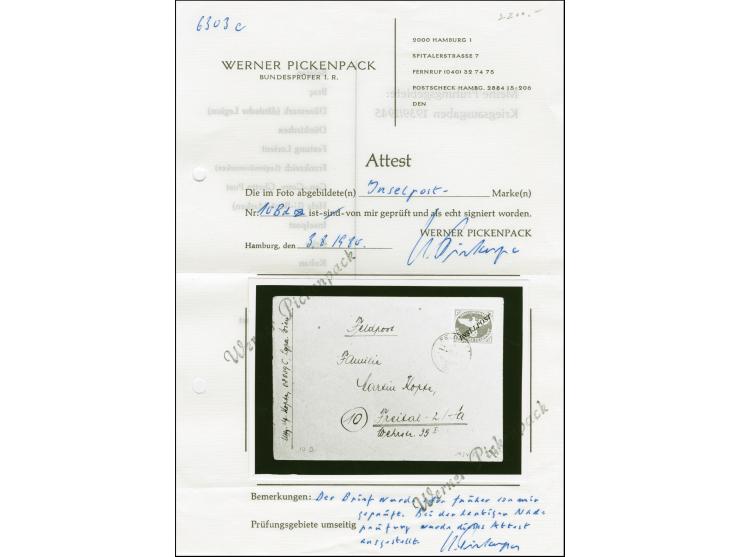 6303 c
2200.-
WERNER PICKENPACK
BUNDESPRÜFER I. R.
2000 HAMBURG 1
SPITALERSTRASSE 7
FERNRUF (040) 32 74 75
POSTSCHECK HAMBG. 2884 15-206
DEN
Attest
Die im Foto abgebildete(n) Inselpost- Marke(n)
Nr: 10Bd ist-sind-von mir geprüft und als echt signiert worden.
Hamburg, den 3.8.1980. WERNER PICKENPACK
Werner Pickenpack
INSELPOST
Feldpost
Familie
Martin Kopte,
(10) Freital-2/Sa
Wehrstr. 35 I
10 B
Werner Pickenpack
Bemerkungen: Der Brief wurde von früher von mir
geprüft. Bei der heutigen Nach
Prüfungsgebiete umseitig prüfung wurde dieses Attest
ausgestellt.